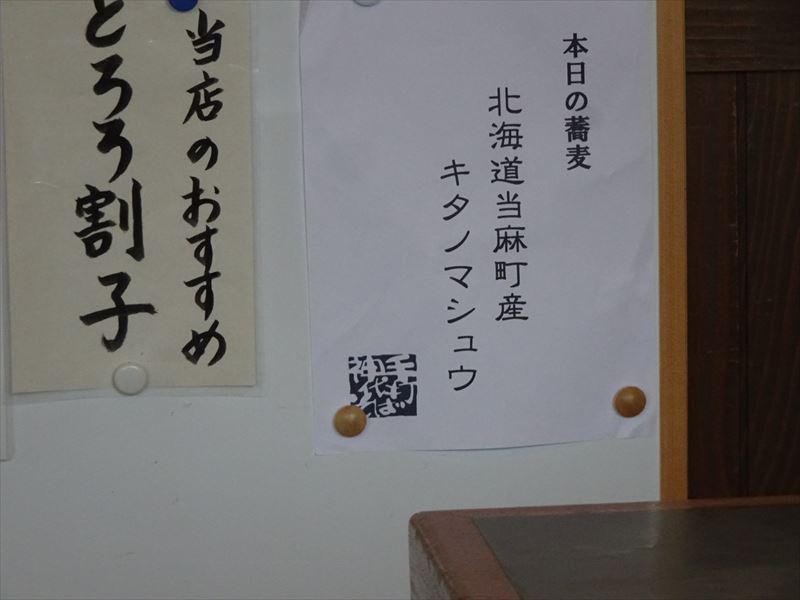 本日の蕎麦
北海道当麻町産
キタノマシュウ
手打
そば
当店のおすすめ
とろろ割子